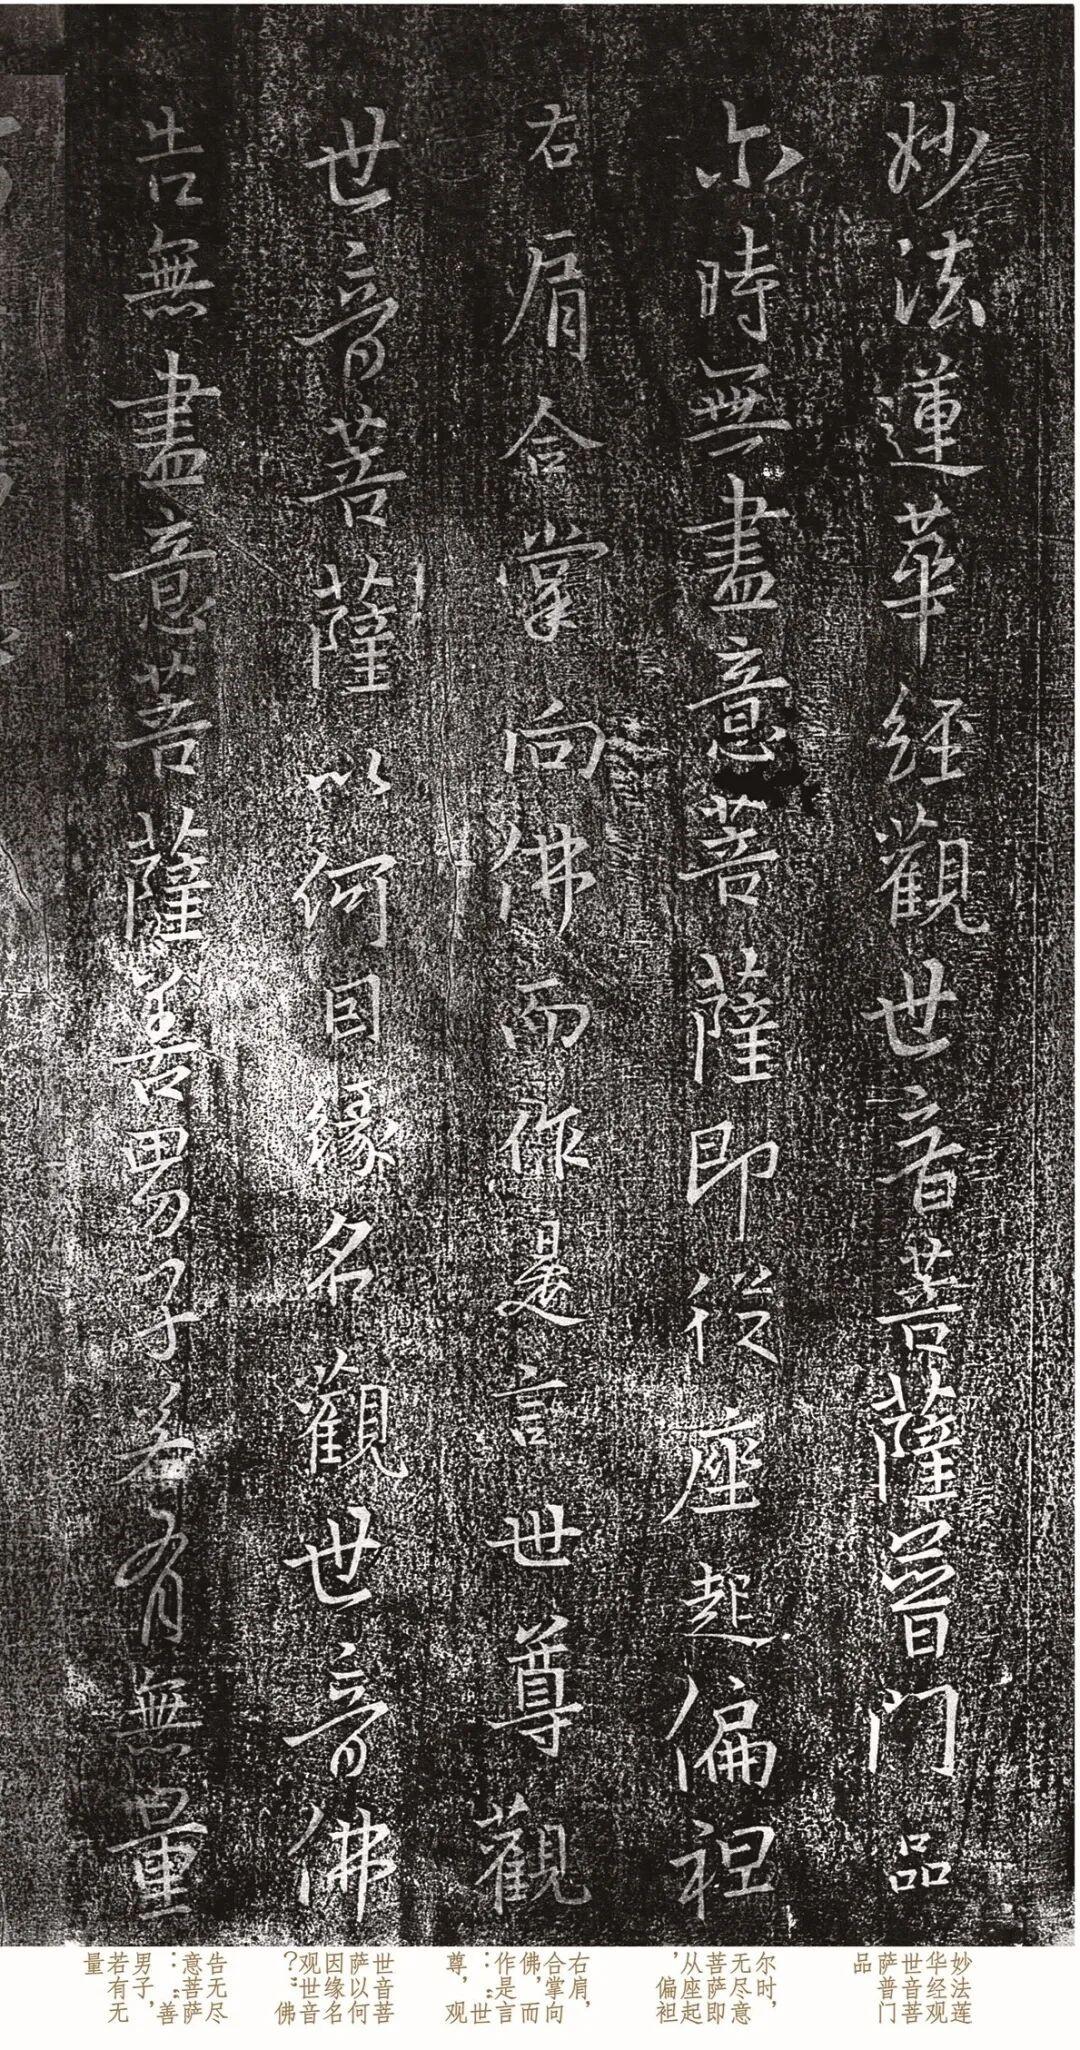 妙法蓮華經觀世音菩薩普門品
尒時無盡意菩薩即從座起偏袒
右肩合掌向佛而作是言世尊觀
世音菩薩以何因緣名觀世音佛
告無盡意菩薩善男子若有無量
妙法莲
华经观
世音菩
萨普门
品
尔时，
无尽意
菩萨即
从座起
，偏袒
右肩，
合掌向
佛，而
作是言
：“世
尊，观
世音菩
萨以何
因缘名
观世音
？”佛
告无尽
意菩萨
：“善
男子，
若有无
量